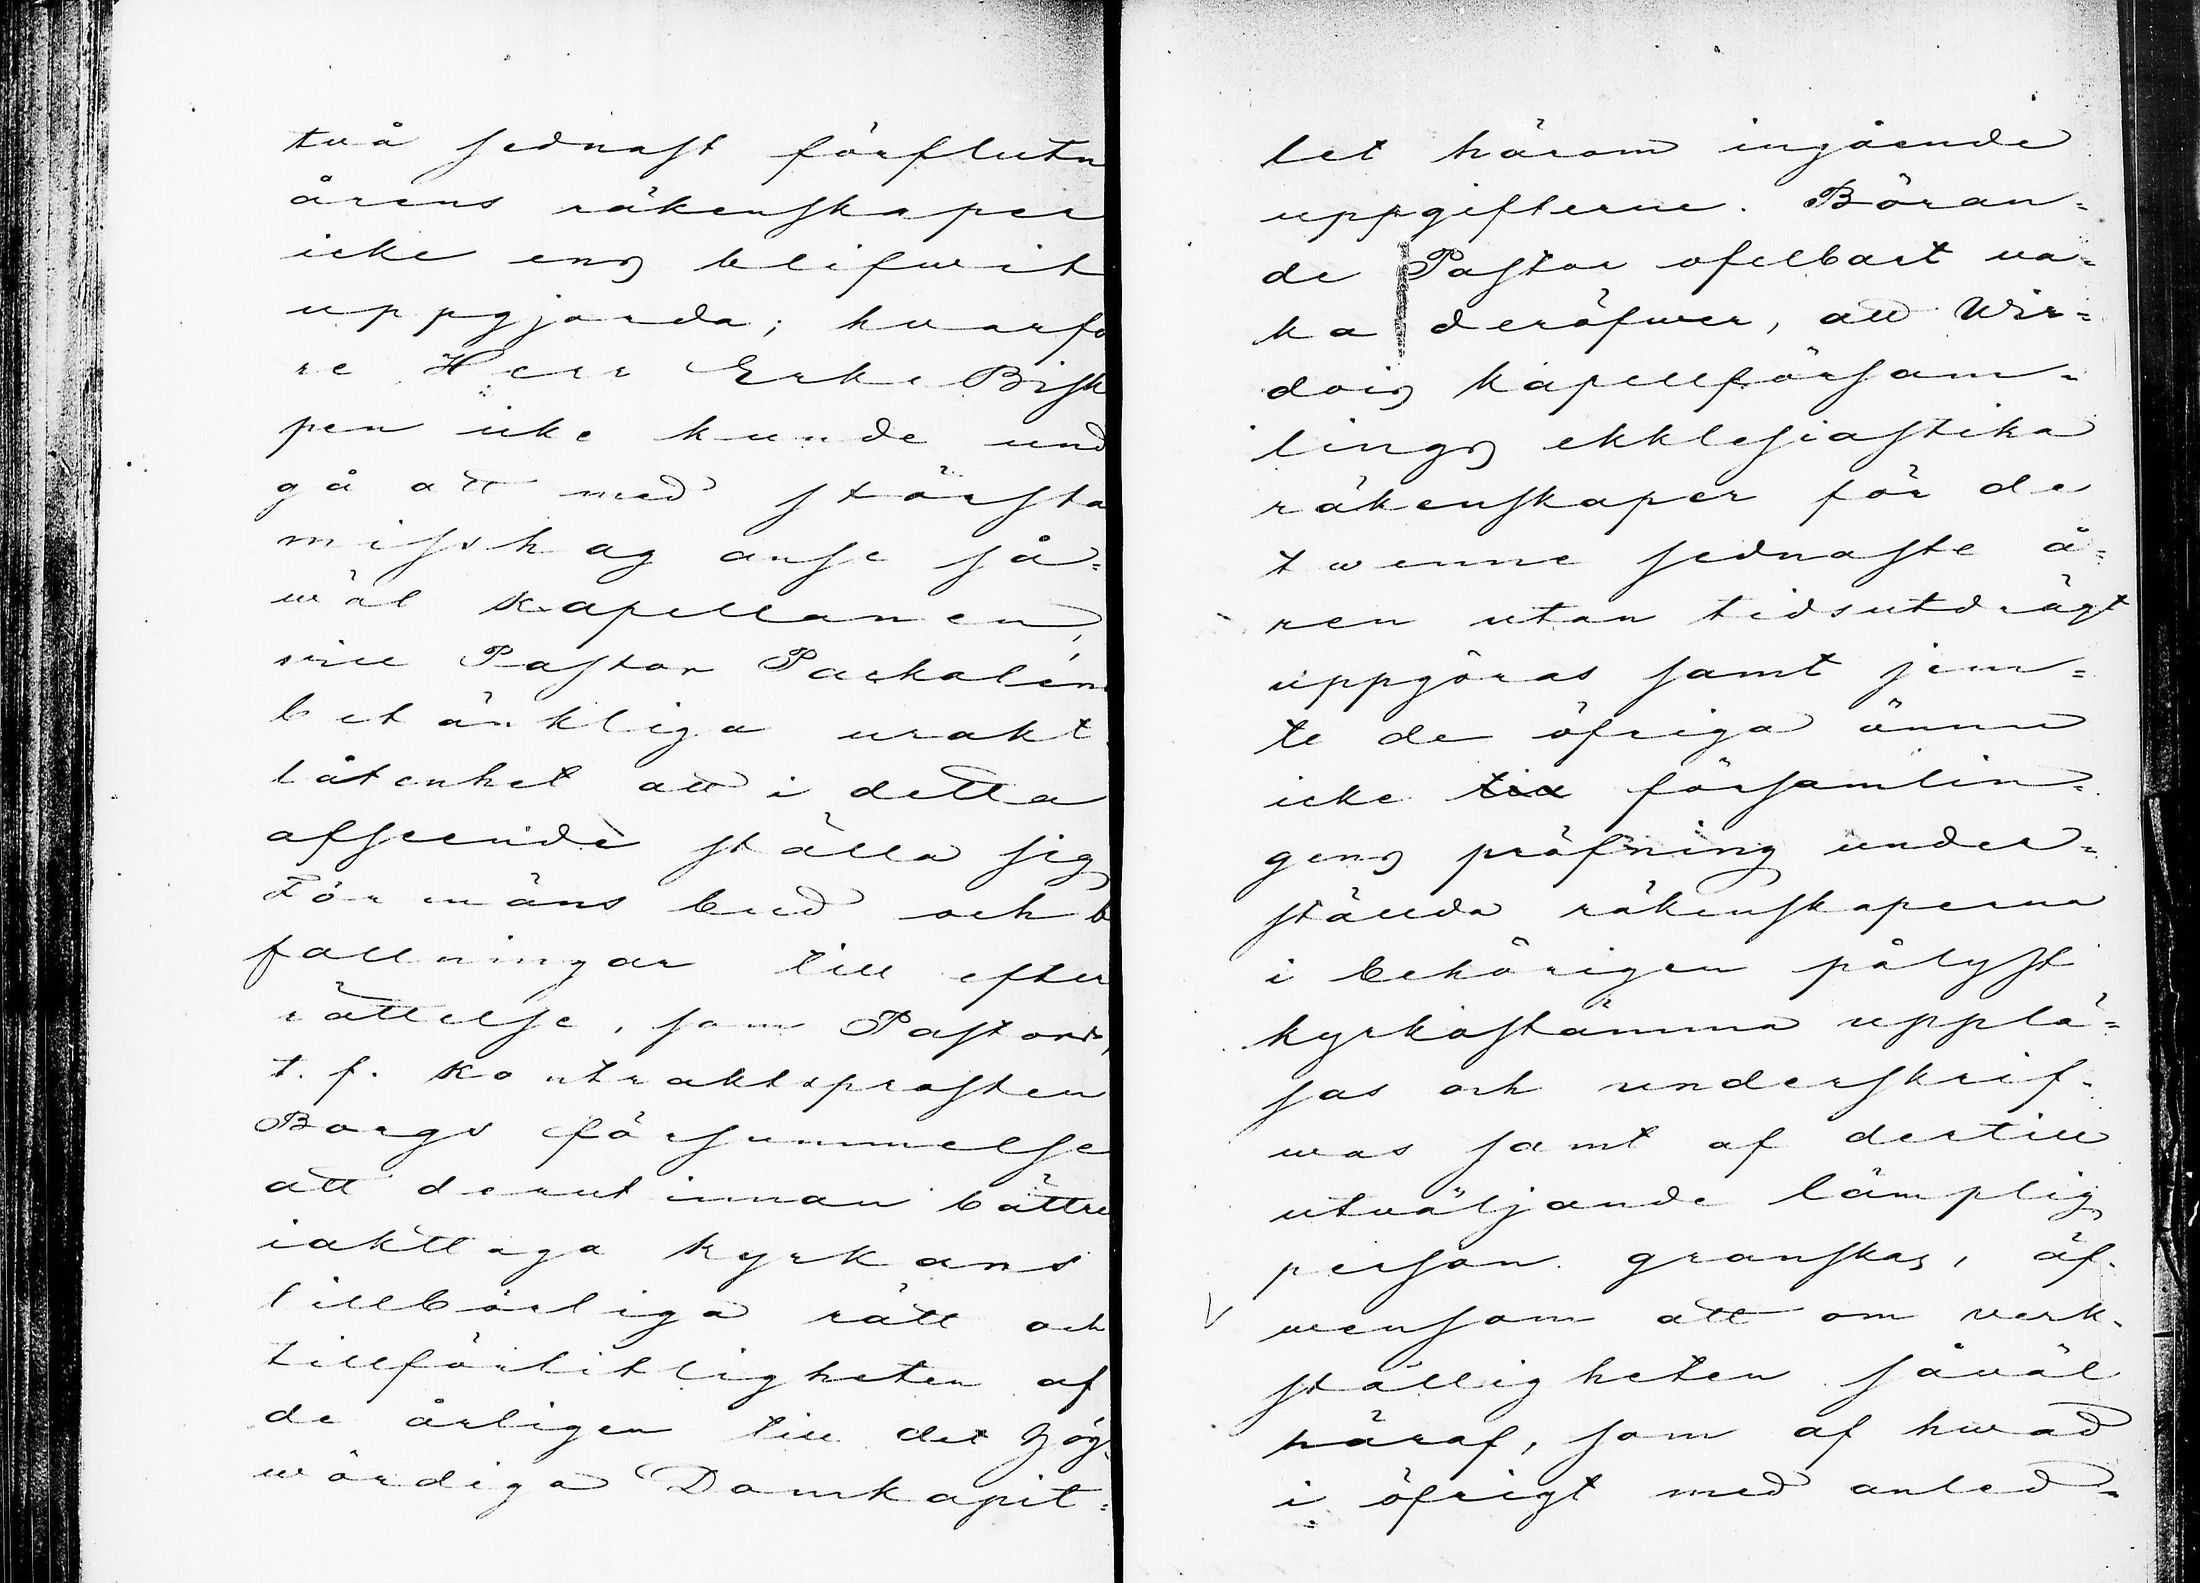 två sednast förflutn
årens räkenskaper
icke ens blifwit
uppgjorda; hvarfö
re Herr Erke Bisk
pen icke kunde und
gå att med största
misshag anse så=
wäl Kapellanen,
vice Pastor Packaléns
betänkliga urakt
låtenhet att i detta
afseende ställa sig
Förmäns bud och b
fallningar till efter
rättelse, som Pastors,
t. f. Kontraktsprosten
Borgs försummelse
att derutinnan bättre
iakttaga kyrkans
tillbörliga rätt och
tillförlitligheten af
de årligen till det Hög=
wördiga Domkapit=
let härom ingående
uppgifterne. Böran=
de Pastor ofelbart va=
ka deröfwer, att Wir=
dois kapellförsam=
lings ekklesiastika
räkenskaper för de
twenne sednaste å=
ren utan tidsutdrägt
uppgöras samt jem=
te de öfriga ännu
icke till församlin=
gens pröfning under=
ställda räkenskaperna
i behörigen pålyst
kyrkostämma upplä=
sas och underskrif=
was samt af dertill
utväljande lämplig
person granskas, äf=
wensom att om verk=
ställigheten såväl
häraf, som af hwad
i öfrigt med anled=